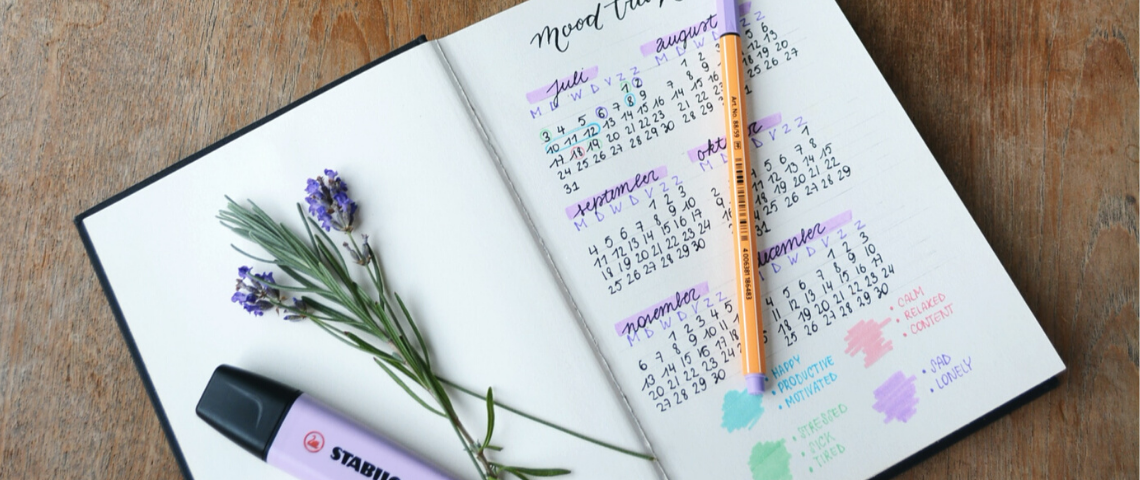 mood
juli
M D W D V Z Z
1 2
3 4 5 6 8 9
10 11 12 13 14 15 16
17 18 19 20 21 22 23
24 25 26 27 28 29 30
31
august
M D W D Z Z
1 2 5 6
7 8 9 12 13
14 15 16 19 20
21 22 23 25 26 27
28 29 31
september
M D W D V Z Z
1 2 3
4 5 6 7 8 9 10
11 12 13 14 15 16 17
18 19 20 21 22 23 24
25 26 27 28 29 30
okt
M D V Z Z
1
2 5 6 7 8
9 11 12 13 14 15
16 18 19 20 21 22
25 26 27 28 29
31
november
M D W D V Z Z
1 2 3 4 5
6 7 8 9 10 11
13 14 15 16 17 18
20 21 22 23 24
27 28 29 30
december
D W D V Z Z
1 2 3
4 5 6 7 8 9 10
11 12 13 14 15 16 17
18 19 20 21 22 23 24
25 26 27 28 29 30
HAPPY
• PRODUCTIVE
• MOTIVATED
• CALM
• RELAXED
• CONTENT
• STRESSED
• SICK
• TIRED
• SAD
• LONELY
Art. No. 88/59
4 006381 186483
STABILO